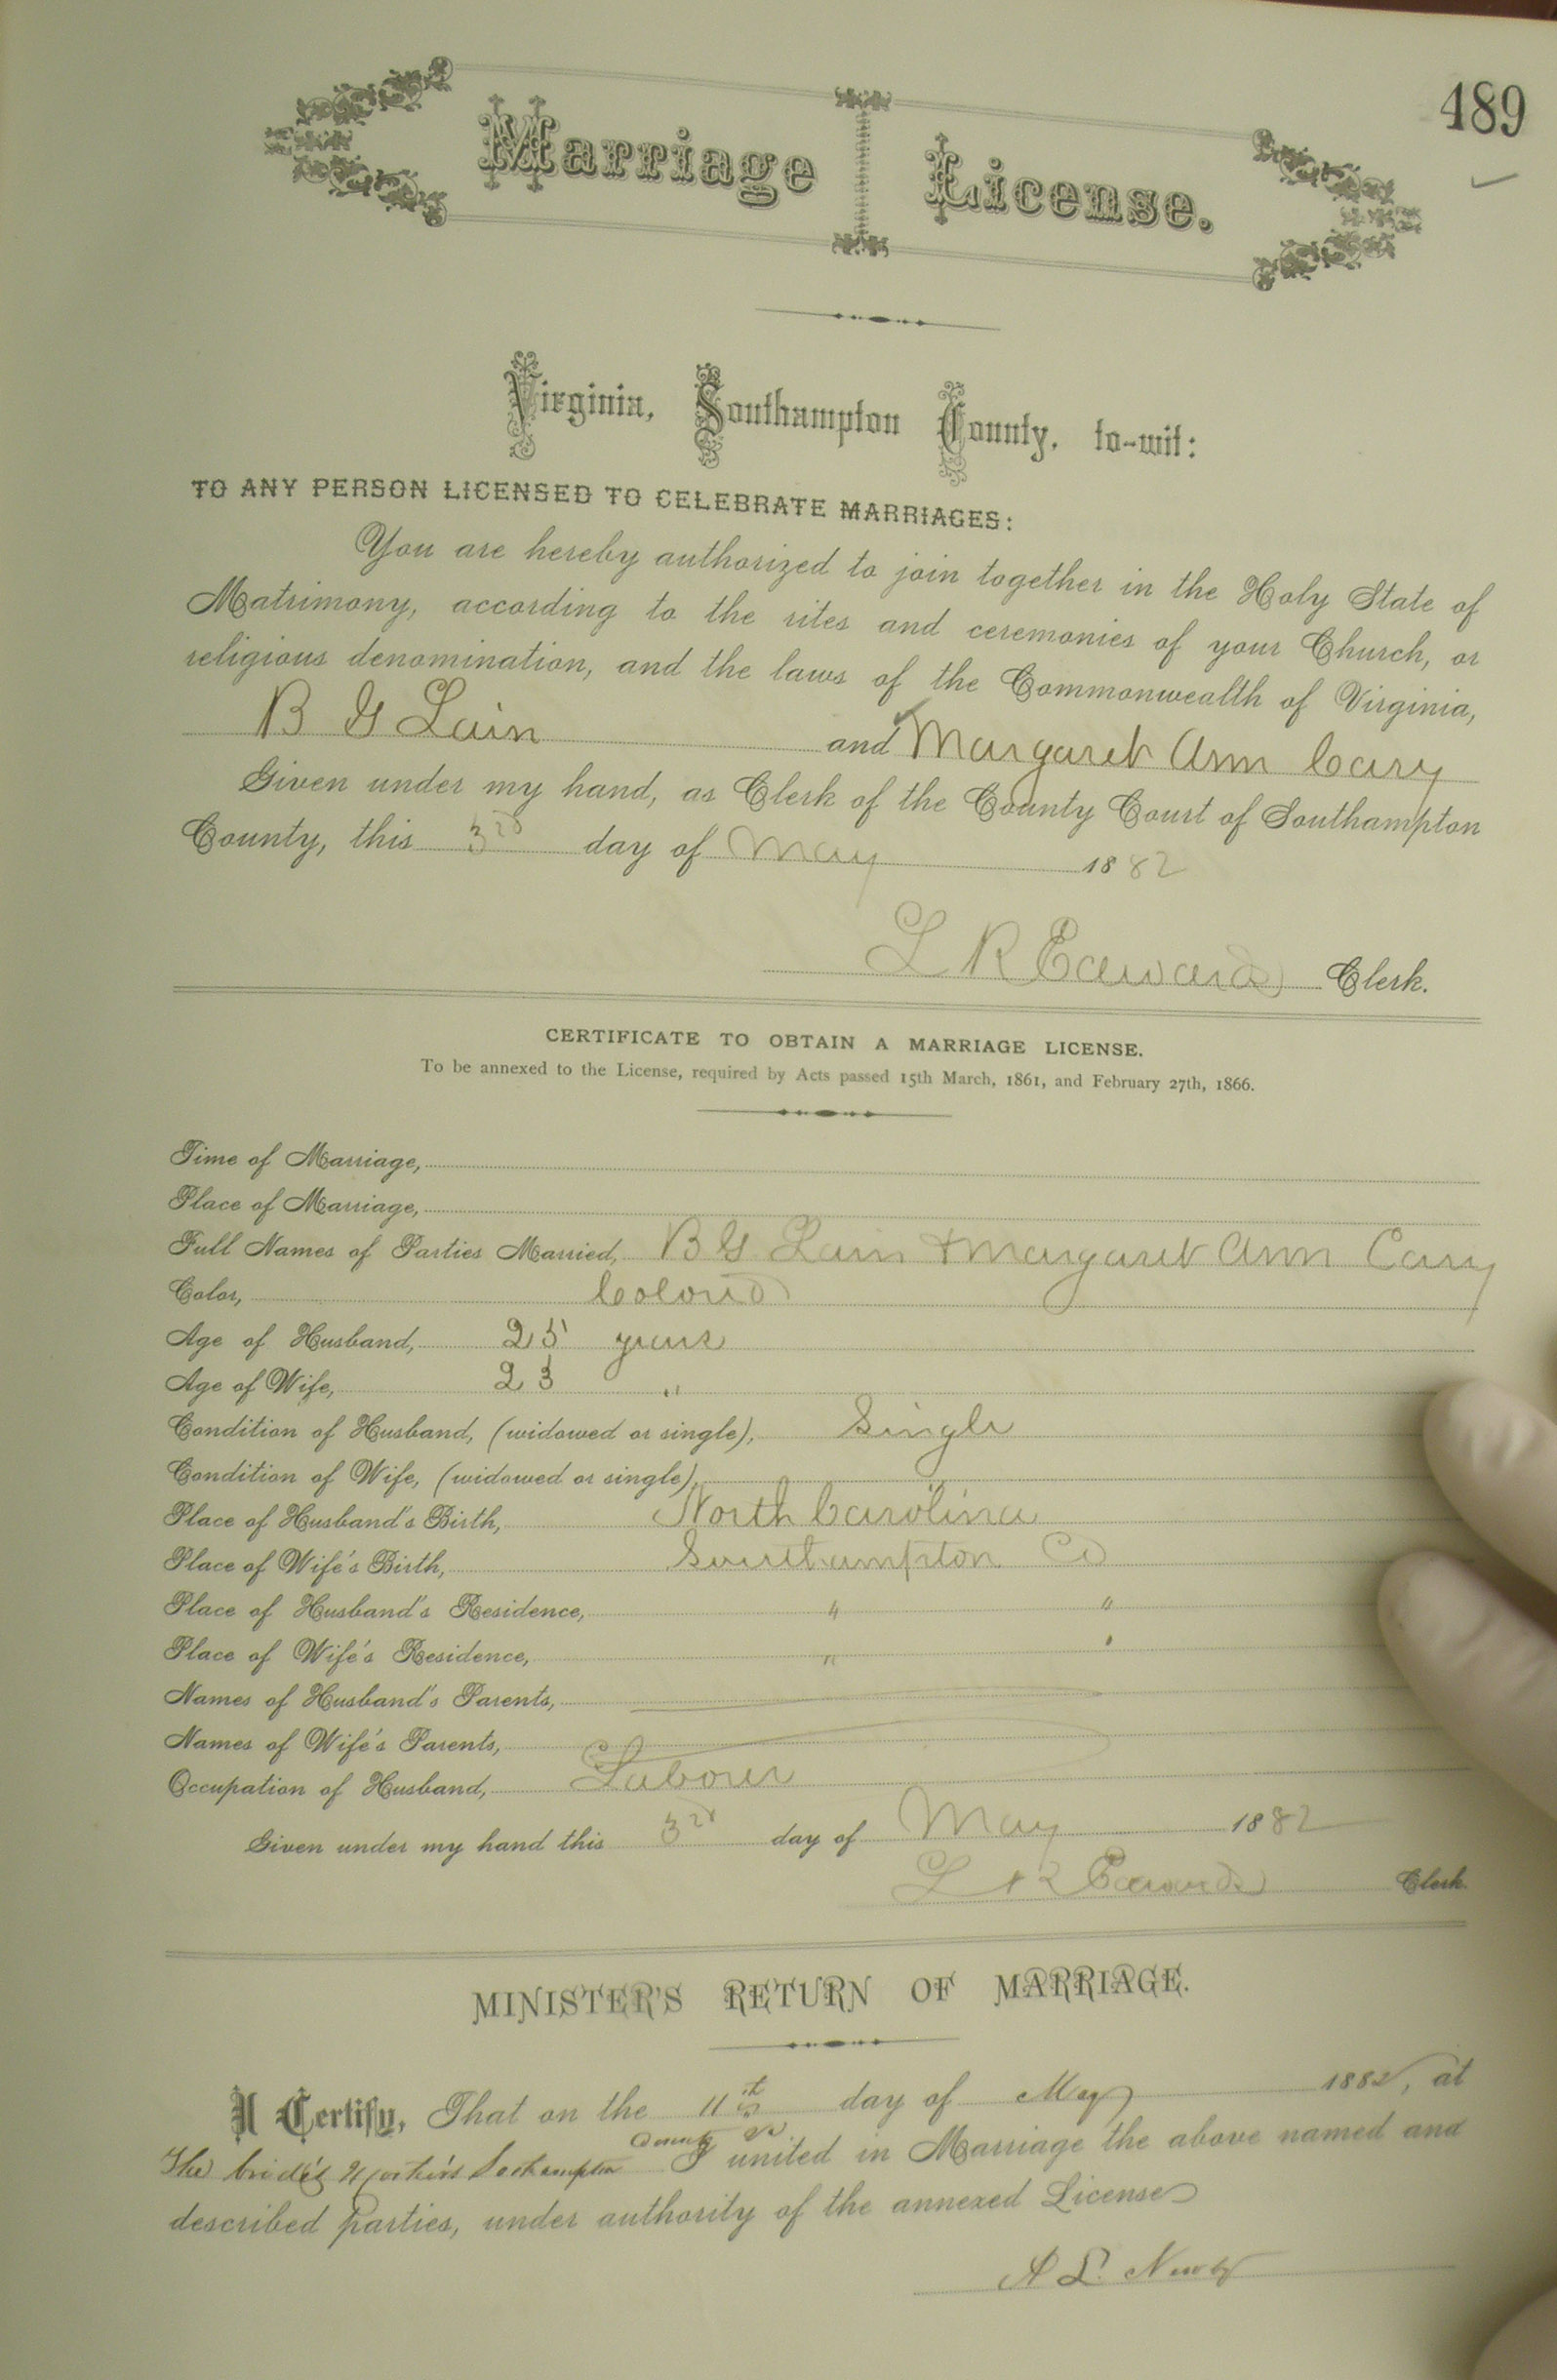 489
Marriage License.
Virginia, Southampton County, to-wit:
TO ANY PERSON LICENSED TO CELEBRATE MARRIAGES:
You are hereby authorized to join together in the Holy State of
Matrimony, according to the rites and ceremonies of your Church, or
religious denomination, and the laws of the Commonwealth of Virginia,
B G Lain and Margaret Ann Cary
Given under my hand, as Clerk of the County Court of Southampton
County, this 3rd day of May 1882
L R Edwards Clerk.
CERTIFICATE TO OBTAIN A MARRIAGE LICENSE.
To be annexed to the License, required by Acts passed 15th March, 1861, and February 27th, 1866.
Time of Marriage,
Place of Marriage,
Full Names of Parties Married, B G Lain & Margaret Ann Cary
Color, Colored
Age of Husband, 25 years
Age of Wife, 23 "
Condition of Husband, (widowed or single), Single
Condition of Wife, (widowed or single),
Place of Husband's Birth, North Carolina
Place of Wife's Birth, Southampton Co
Place of Husband's Residence, " "
Place of Wife's Residence, " "
Names of Husband's Parents,
Names of Wife's Parents,
Occupation of Husband, Laborer
Given under my hand this 3rd day of May 1882
L R Edwards Clerk.
MINISTER'S RETURN OF MARRIAGE.
I Certify, That on the 11th day of May 1882, at
County
The bride's I united in Marriage the above named and
described parties, under authority of the annexed License
A L